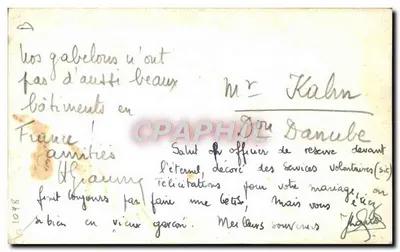 nos gabelous n'ont
pas d'aussi beaux
bâtiments en
France !
amitiés
Mr Kahn
Don Danube
Salut officier de réserve devant
l'éternel, décoré des services volontaires (sic)
félicitations pour votre mariage, on
finit toujours par faire une bêtise, mais vous étiez
si bien en vieux garçon. Meilleurs souvenirs
CPArama.com